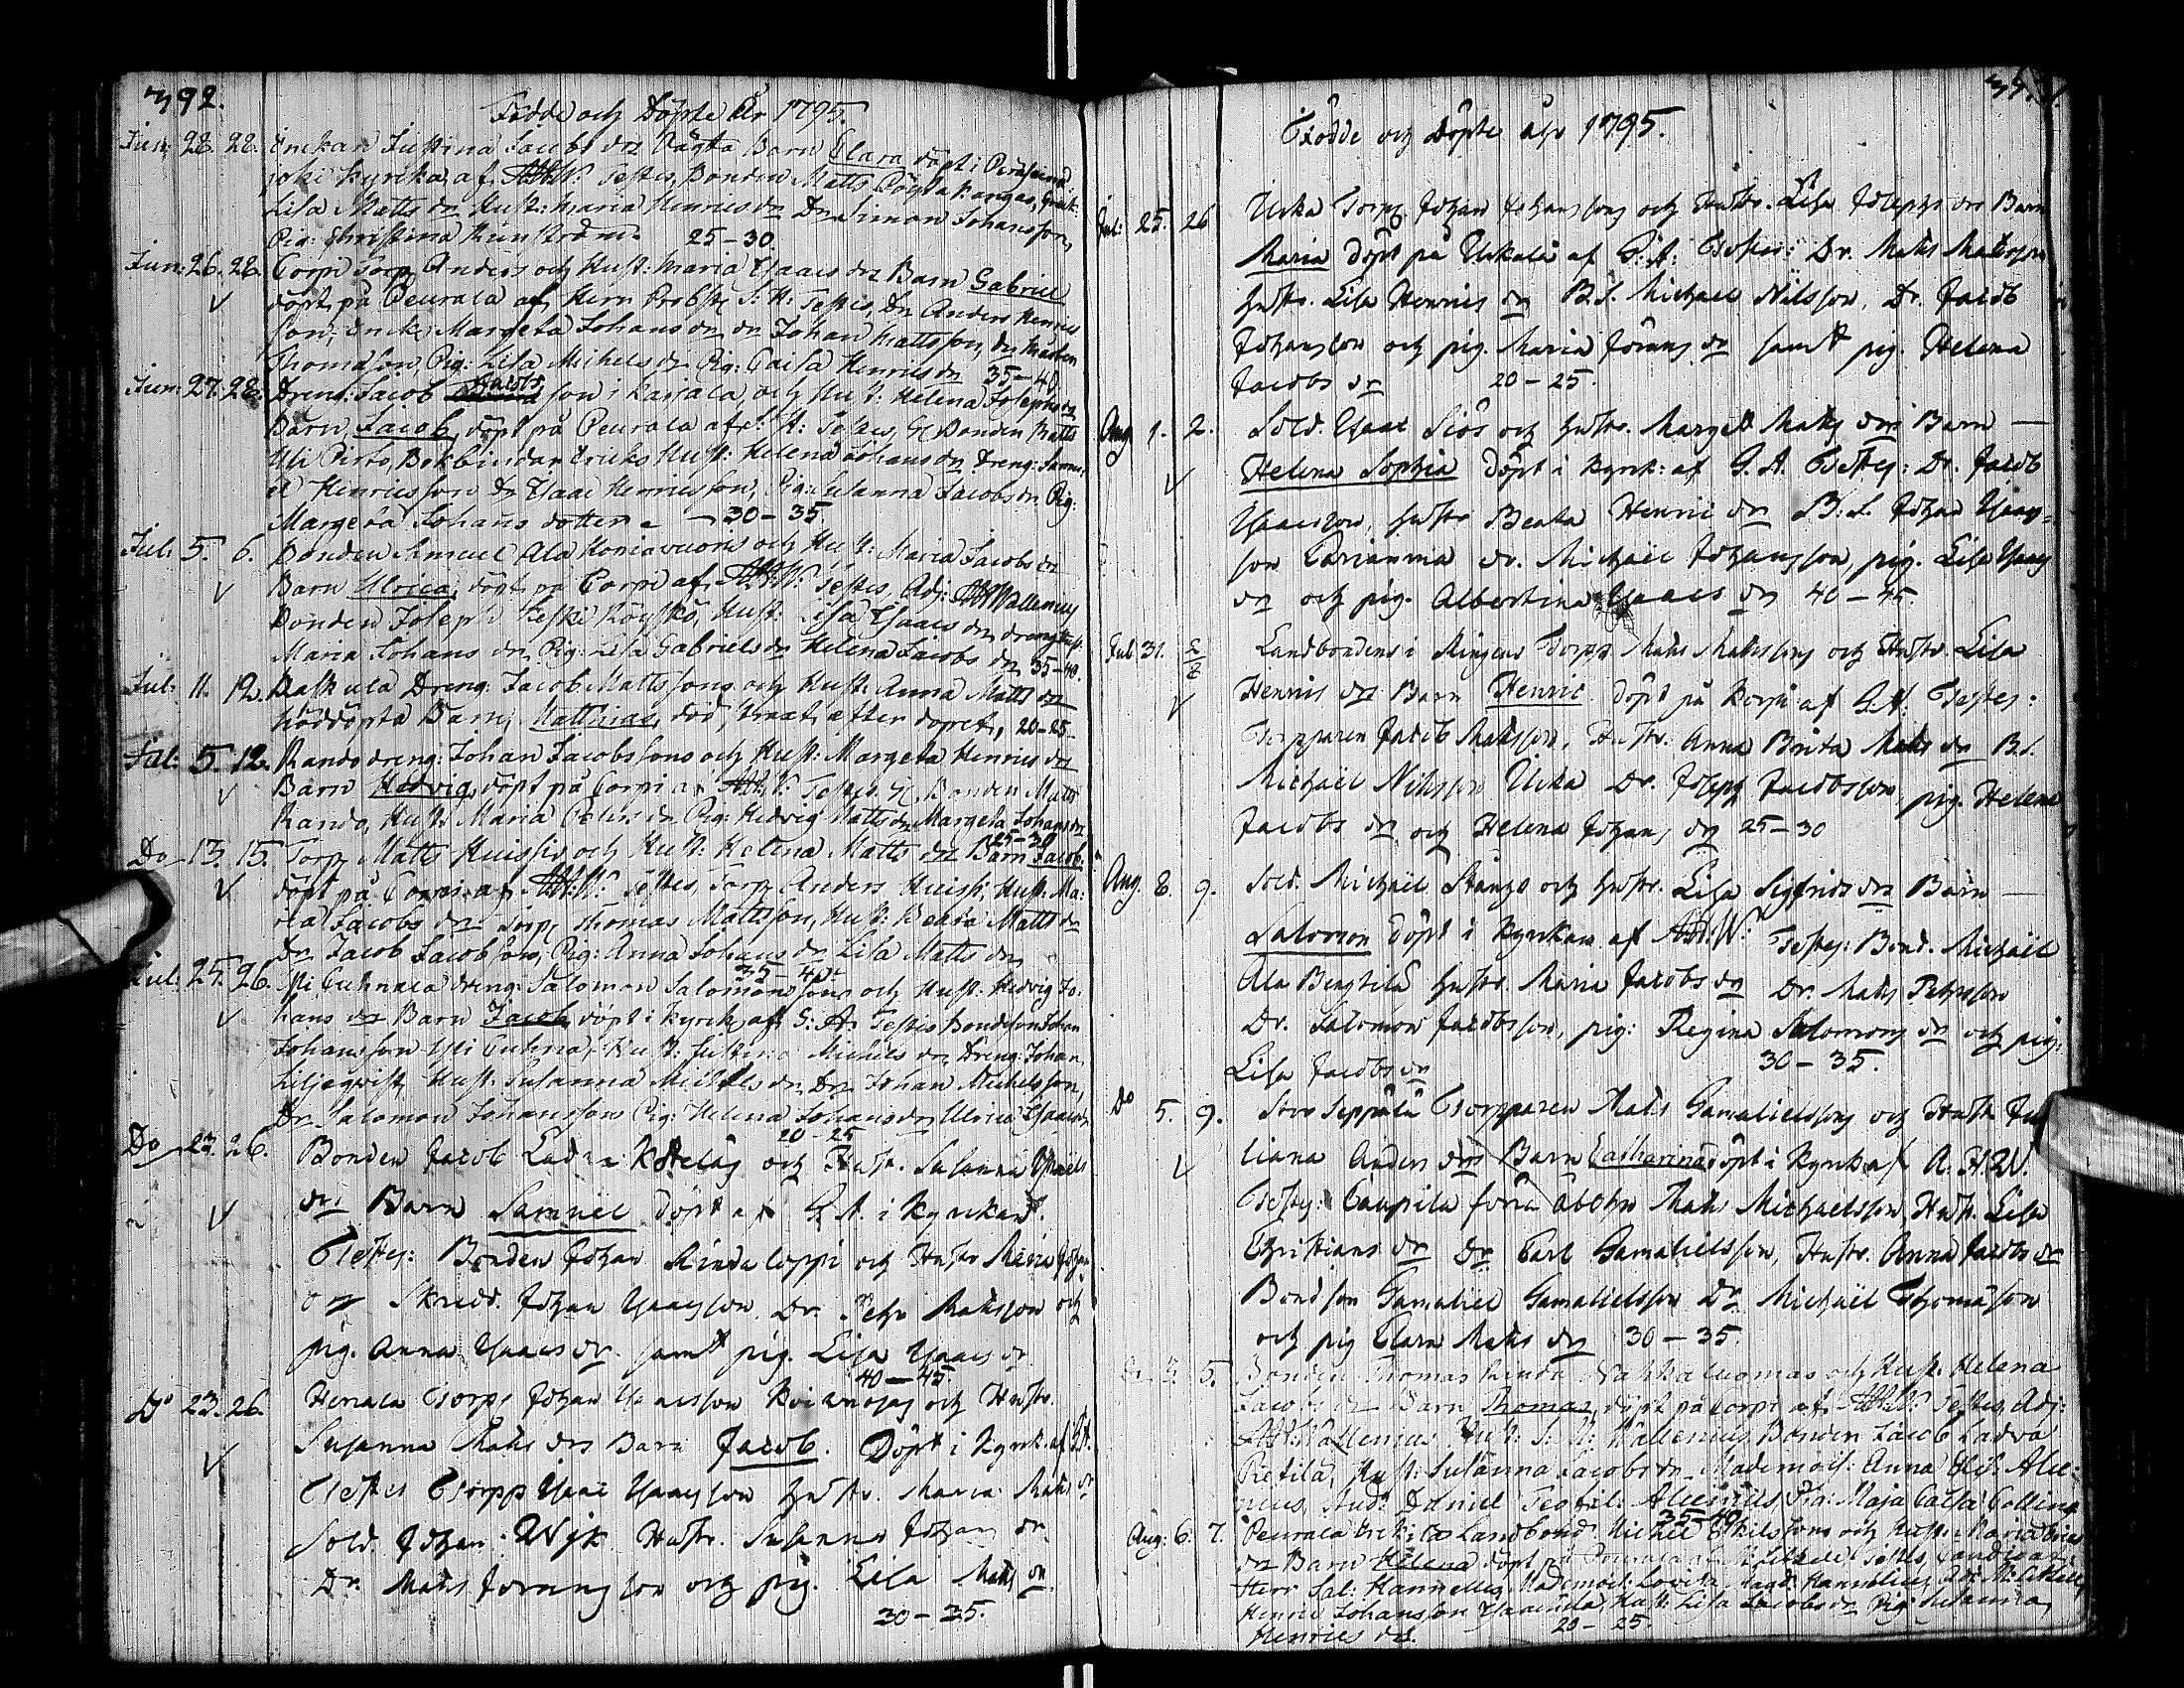 392.
Födde och Döpte År 1795.
Jun: 28. 28. Enckan Justina Jacobs dr Pågta Barn Clara döpt i Peräseinä
joki kyrka, af AHW. Testes, Bonden Matts Pågta kangas, Greta
Lisa Matts dr Hust: Maria Henrics dr Dr Simon Johansson,
Pig: Christina 25-30.
Jun: 26. 28. Corpi Torp Anders och Hust: Maria Isaacs dr Barn Gabriel
döpt på Peurala af Herr Probst S: H: Testes, Dr Anders Henrics
son, Enck: Margeta Johans dr Dr Johan Mattsson, Dr Mårten
Thomasson, Pig: Lisa Michels dr Pig: Caisa Henrics dr 35-40
Jun: 27. 28. Dreng: Jacob Jacobs son i Kassala och Hust: Helena Josephs dr
Barn Jacob döpt på Peurala af S: H: Testes, Bonden Matts
Yli Pirto, Bokbindar Ericks Hust: Helena Johans dr Dreng: Samu
el Henricsson Dr Isaac Henricsson, Pig: Susanna Jacobs dr Pig:
Margeta Johans dotter 30-35.
Jul: 5. 6. Bonden Samuel Ala Honiavuoris och Hust: Maria Jacobs dr
Barn Ulrica, döpt på Corpi af AHW: Testes, Adj: AHWallenius
Bonden Joseph Keski Röyskö, Hust: Lisa Isaacs dr drengHust:
Maria Johans dr Pig: Lisa Gabriels dr Helena Jacobs dr 35-40.
Jul: 11. 12. Raskula Dreng: Jacob Mattssons och Hust: Anna Matts dr
nöddöpta Barn, Matthias, död straxt efter dopet, 20-25
Jul: 5. 12. Rando dreng: Johan Jacobssons och Hust: Margeta Henrics dr
Barn Hedvig, döpt på Corpi af AHW: Testes, Bonden Matts
Rando, Hust: Maria Peters dr Pig: Hedvig Matts dr Margeta Johans dr
25-30
Do 13. 15. Torp Matts Huissis och Hust: Helena Matts dr Barn Jacob:
döpt på Corpi af AHW: Testes, Torp Anders Huissi, Hust: Ma:
ria Jacobs dr Torp Thomas Mattsson, Hust: Beata Matts dr
Dr Jacob Jacobsson, Pig: Anna Johans dr Lisa Matts dr
35-40
Jul: 25. 26. Yli Tuhnala dreng: Salomon Salomonssons och Hust: Hedvig Jo:
hans dr Barn Jacob, döpt i kyrck: af G: A: Testes Bondeson Johan
Johansson Yli Tuhna, Hust: Justina Michels dr Dreng: Johan
Liljeqvist, Hust: Susanna Michels dr Dr Johan Michelsson,
Dr Salomon Johansson Pig: Helena Johans dr Ulrica Isaacs dr
20-25
Do 23. 26. Bonden Jacob Ladva och Hustr. Susanna Michels
dr Barn Samuel döpt af G. A. i Kyrckan.
Testes: Bonden Johan Rindaloppi och Hustr Maria Johans
dr Skredd. Johan Isaacsson, Dr. Petr Matsson och
pig. Anna Isaacs dr samt pig. Lisa Isaacs dr
40-45.
Do 23. 26. Torps Johan Isaacsson och Hustr.
Susanna Mats drs Barn Jacob. Döpt i Kyrck. af G.A.
Testes Torpp Isaac Isaacsson Hustr. Maria Mats dr
Sold. Johan Wijk Hustr. Susanna Johans dr.
Dr. Mats Jöransson och pig. Lisa Mats dr
30-35.
Födde och Döpte åhr 1795.
Jul: 25. 26 Urka Torp. Johan Johanssons och Hustr. Lisa Josephs drs Barn
Maria döpt på Urkala af G: A: Testes: Dr. Mats Matsson
Hustr. Lisa Henrics dr B.S. Michael Nilsson, Dr. Jacob
Johansson och pig. Maria Jörans dr samt pig. Helena
Jacobs dr 20-25.
Aug 1. 2. Sold. Isaac Siös och Hustr. Margett Mats drs Barn
Helena Sophia döpt i Kyrck: af G. A. Testes: Dr. Jacob
Isaacsson, Hustr Beata Henric dr B:S. Johan Isaacs=
son Carianma Dr. Michaël Johansson, pig. Lisa Isaacs
dr och pig. Albertina Isaacs dr 40-45.
Jul 31. 2/8 Landbondens i Ringens Torpp Mats Matssons och Hustr. Lisa
Henrics drs Barn Henric döpt på Korpi af G.A. Testes:
Torpparen Jacob Matsson, Hustr. Anna Brita Mats dr B.S.
Michaël Nilsson Urka Dr. Joseph Jacobsson, pig. Helena
Jacobs dr och Helena Johans dr 25-30
Aug. 8. 9. Sold. Michaël Stångs och Hustr. Lisa Sigfrids drs Barn
Salomon döpt i Kyrckan af AHW: Testes: Bond. Michaël
Ala Bengtila Hustr. Maria Jacobs dr Dr. Mats Petersson
Dr. Salomon Jacobsson, pig: Regina Salomons dr och pig:
Lisa Jacobs dr 30-35.
Do 5. 9. Seppälä Torpparen Mats Gamalielssons och Hustr. Ju
liana Anders drs Barn Catharina döpt i Kyrck af A.H.W.
Testes: Caupila förra åbohn Mats Michaelsson, Hustr. Lisa
Christians dr Dr Carl Gamalielsson, Hustr. Anna Jacobs dr
Bondson Gamaliel Gamalielsson Dr. Michaël Thomasson
och pig Clara Mats dr 30-35.
5. Bonden Thomas Rinda Nahkaluomas och Hust. Helena
Jacobs dr Barn Thomas, döpt på Corpi af AHW: Testes, Adj:
AHWallenius Hust: S: M: Wallenius, Bonden Jacob Ladva
Pietilä, Hust: Susanna Jacobs dr Mademois: Anna Elis: Alce:
nius, Stud: Daniel Teofil: Alcenius Pig: Maja Caisa Colling
35-40
Aug: 6. 7. Peurala Landbond: Michel Eskilssons och Hust: Maria Erics
dr Barn Helena döpt på Peurala af Testes, Candidat:
Herr Hannelius, Mademois: Lovisa Magd: Hannelius,
Henric Johansson, Hust: Lisa Jacobs dr Pig: Susanna
Henrics dr. 20-25.